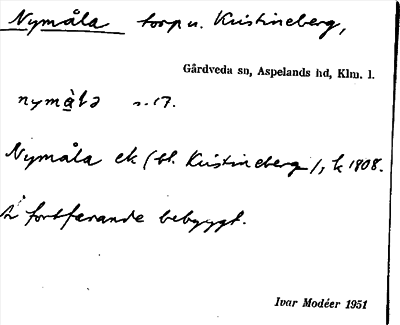 Nymåla torp u. Kristineberg,
Gårdveda sn, Aspelands hd, Klm. l.
nymå̀lə s. 17.
Nymåla ek (bl. Kristineberg), k 1808.
Är fortfarande bebyggt.
Ivar Modéer 1951